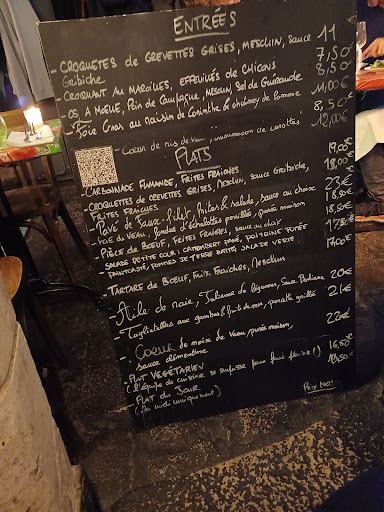 ENTRÉES
- CROQUETTES DE CREVETTES GRISES, MESCLUN, SAUCE GRIBICHE 11
- CROQUANT AU MAROILLES, EFFEUILLÉS DE CHICONS 7,50
- OS À MOELLE, PAIN DE CAMPAGNE, MESCLUN, SEL DE GUÉRANDE 8,50
- FOIE GRAS AU RAISIN DE CORINTHE & CHUTNEY DE POMME 11,00
8,50
- CŒUR DE RIS DE VEAU, DE CAROTTES 12,00
PLATS
- CARBONNADE FLAMANDE, FRITES FRAÎCHES 19,00
- CROQUETTES DE CREVETTES GRISES, MESCLUN, SAUCE GRIBICHE, 18,00
FRITES FRAÎCHES
- PAVÉ DE FILET, FRITES & SALADE, SAUCE AU CHOIX 23€
- FOIE DE VEAU, FONDUE D'ÉCHALOTTES PERSILLÉE, PURÉE MAISON 18,50
- PIÈCE DE BŒUF, FRITES FRAÎCHES, SAUCE AU CHOIX 18,50
- SALADE PETITE COUR: CAMEMBERT PANÉ, POITRINE FUMÉE 17,50
POMMES DE TERRE SALADE VERTE
- TARTARE DE BŒUF, FRITES FRAÎCHES, MESCLUN 17,00
- AILE DE RAIE, DE LÉGUMES, SAUCE 20€
- TAGLIATELLES AUX GAMBAS & FRUITS DE MER, PANCETTA GRILLÉE 21€
- COEUR DE NOIX DE VEAU, PURÉE MAISON, 22€
SAUCE CLÉMENTINE
- PLAT VÉGÉTARIEN 16,50
(L'ÉQUIPE DE CUISINE SE SURPASSE POUR FAIRE PLAISIR!)
- PLAT DU JOUR 13,50
(LE MIDI UNIQUEMENT)
PRIX NETS